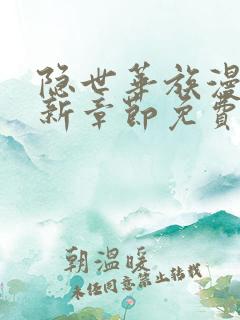 隐世华族漫
新章節免費
朝溫暖
未经同意禁止转载